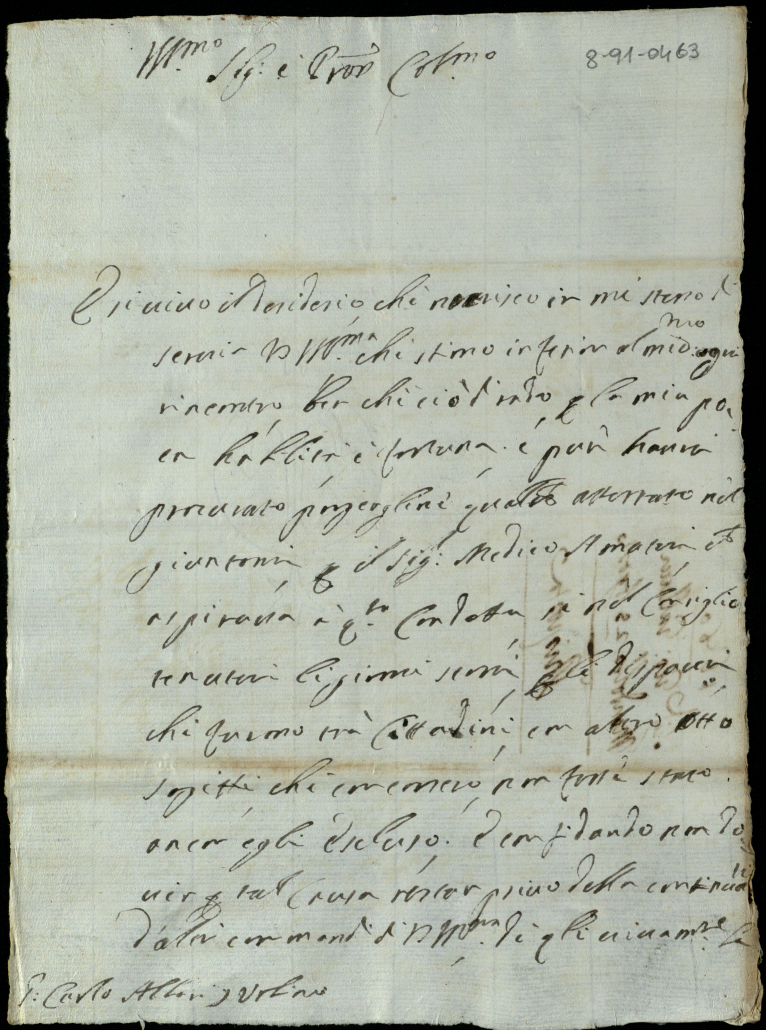 Ill.mo
Sig: e Pron Col.mo
8-91-0463
È sì vivo il desiderio che nodrisco in me stesso di
servir V.S. Ill.ma che stimo inferior al med.mo ogni
rincontro ben che ciò di rado p la mia po-
ca habilità e fortuna. e però havrei
procurato porgergline attestato nel
p il Sig: Medico Amatori
aspirava à q.ta Condotta se nel Consiglio
tenutosi li giorni scorsi p le dispareri
che furono trà Cittadini, con altro otto
sogetti che concorsero, non fosse stato
ancor egli escluso. E confidando non do-
ver p tal Causa restar privo della
d'altri commandi di V.S. Ill.ma di gli vivam.te
S: Carlo Urbino